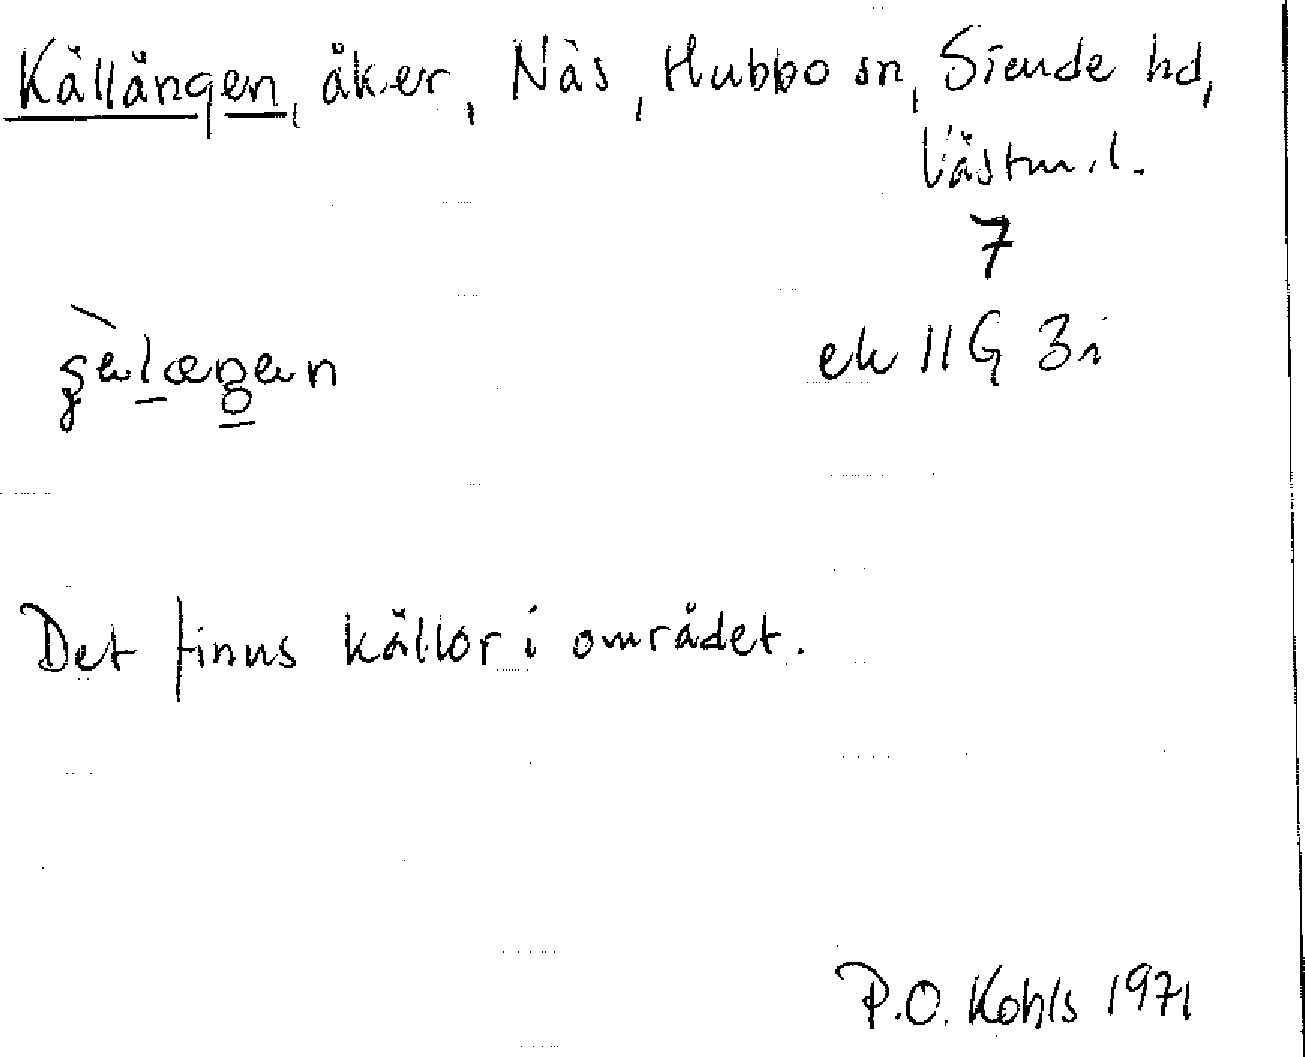 Källängen, åker, Näs, Hubbo sn, Siende hd,
Västm. l.
7
ek 11G 3i
Det finns källor i området.
P.O. Kohls 1971